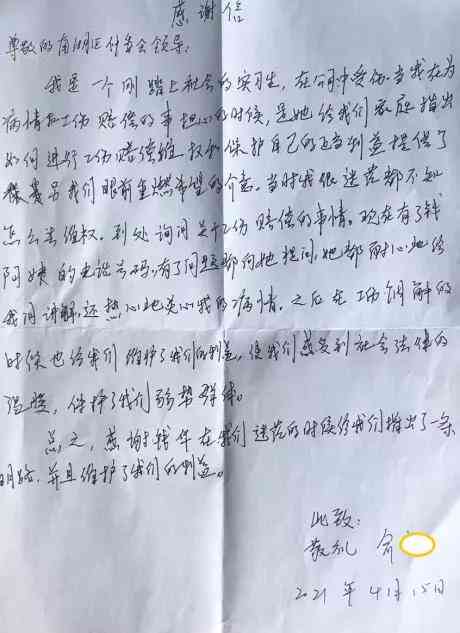 感谢信
尊敬的南湖区什委会领导:
我是一个刚踏上社会的实习生,在公司中受伤。当我在为
病情和工伤赔偿的事担心的时候,是她给我们家庭指出
如何进行工伤赔偿维权和保护自己的正当利益提供了
我们眼前重燃希望的介意。当时我很迷茫都不知
怎么去维权。到处询问关于工伤赔偿的事情。现在有了钱
阿姨的电话号码,有了问题都向她提问,她都耐心地给
我词讲解,还热心地关心我的病情。之后在工伤调解的
时候也给我们维护了我们的利益,使我们感受到社会法律的
温暖,保护了我们弱势群体。
总之,感谢钱华在我们迷茫的时候给我们指出了一条
明路,并且维护了我们的利益。
此致:
敬礼 俞
2021年4月15日